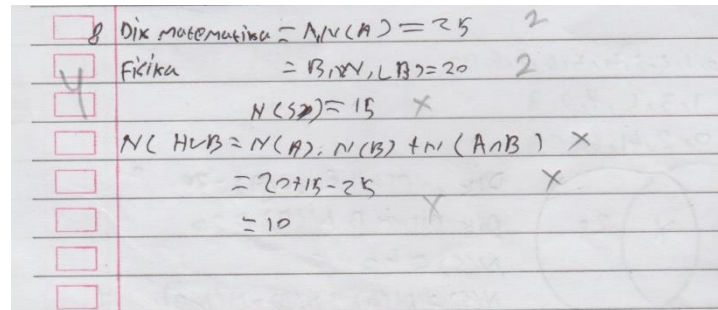 8 Dix matematika = A, N(A) = 25 2
Fisika = B, N(B) = 20 2
4
N(S) = 15 ×
N( AUB = N(A). N(B) + N (A∩B) ×
= 20+15-25 ×
= 10 ×